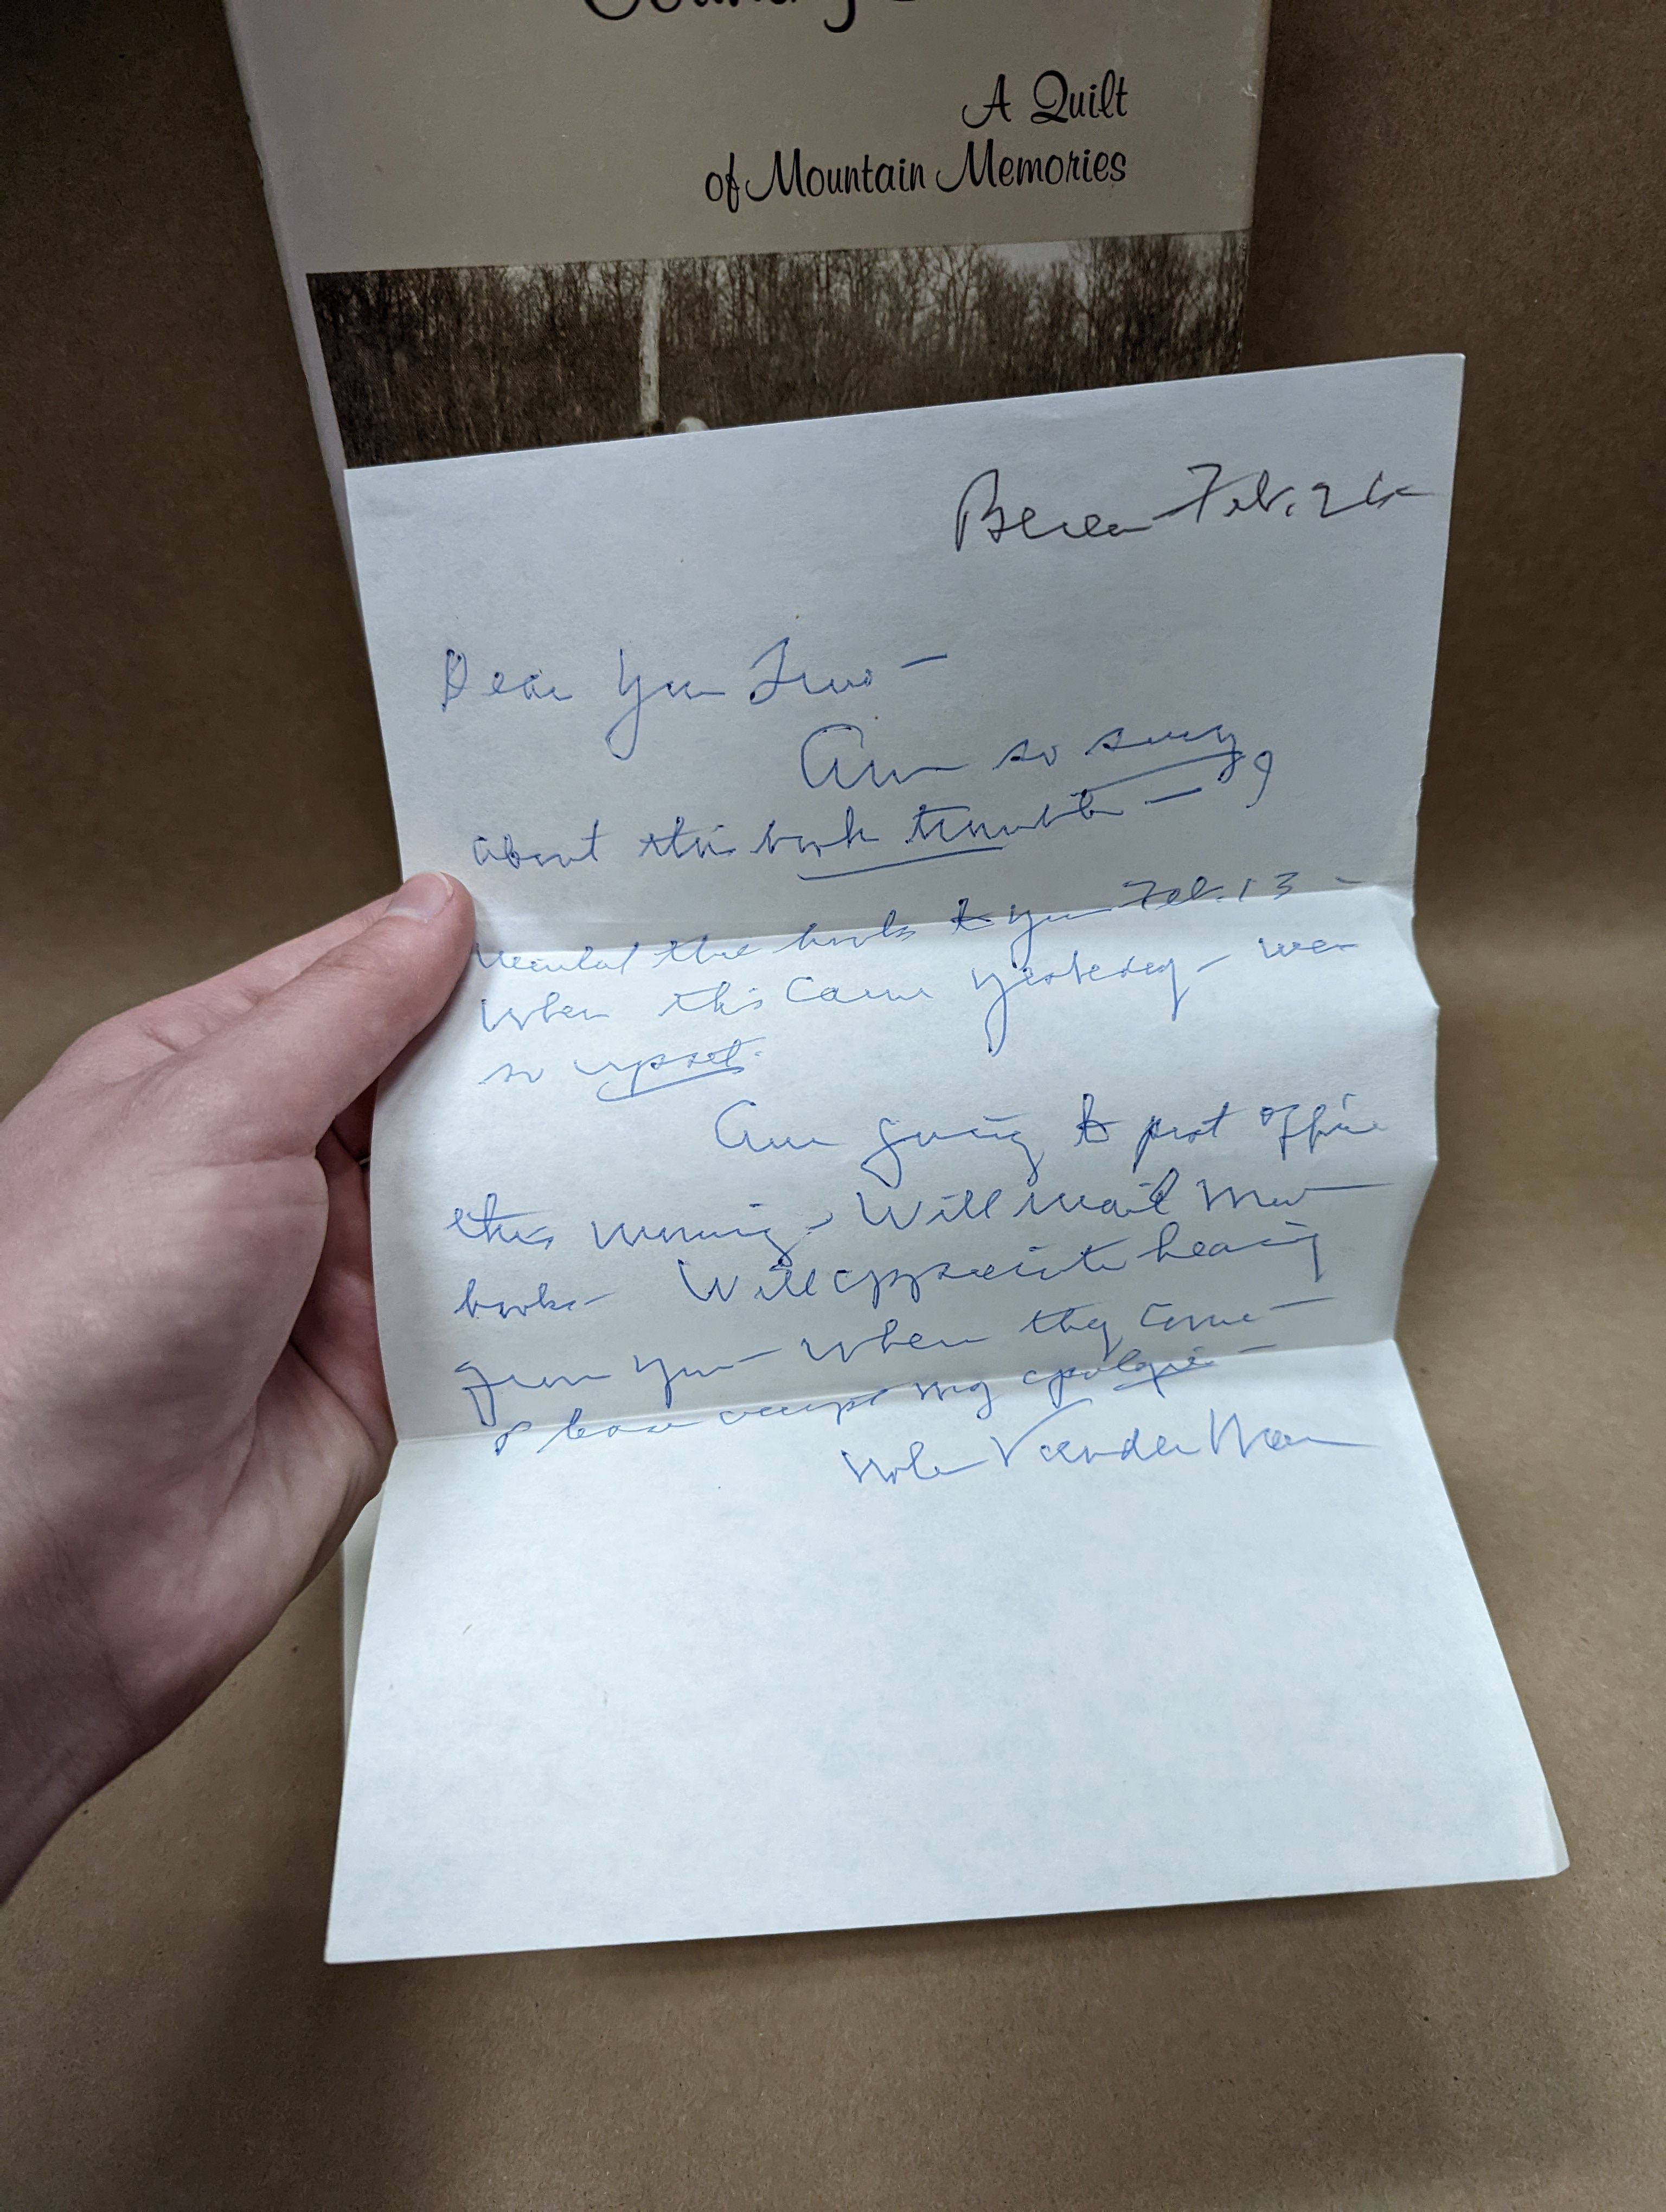 A Quilt
of Mountain Memories
Berea Feb. 26
Dear You Two —
Am so sorry
about this book trouble — I
mailed the books to you Feb. 13 —
When this came yesterday — was
so upset.
Am going to post office
this morning — Will mail more
books — Will appreciate hearing
from you — when they come —
Please accept my apologies —
VanderWarn